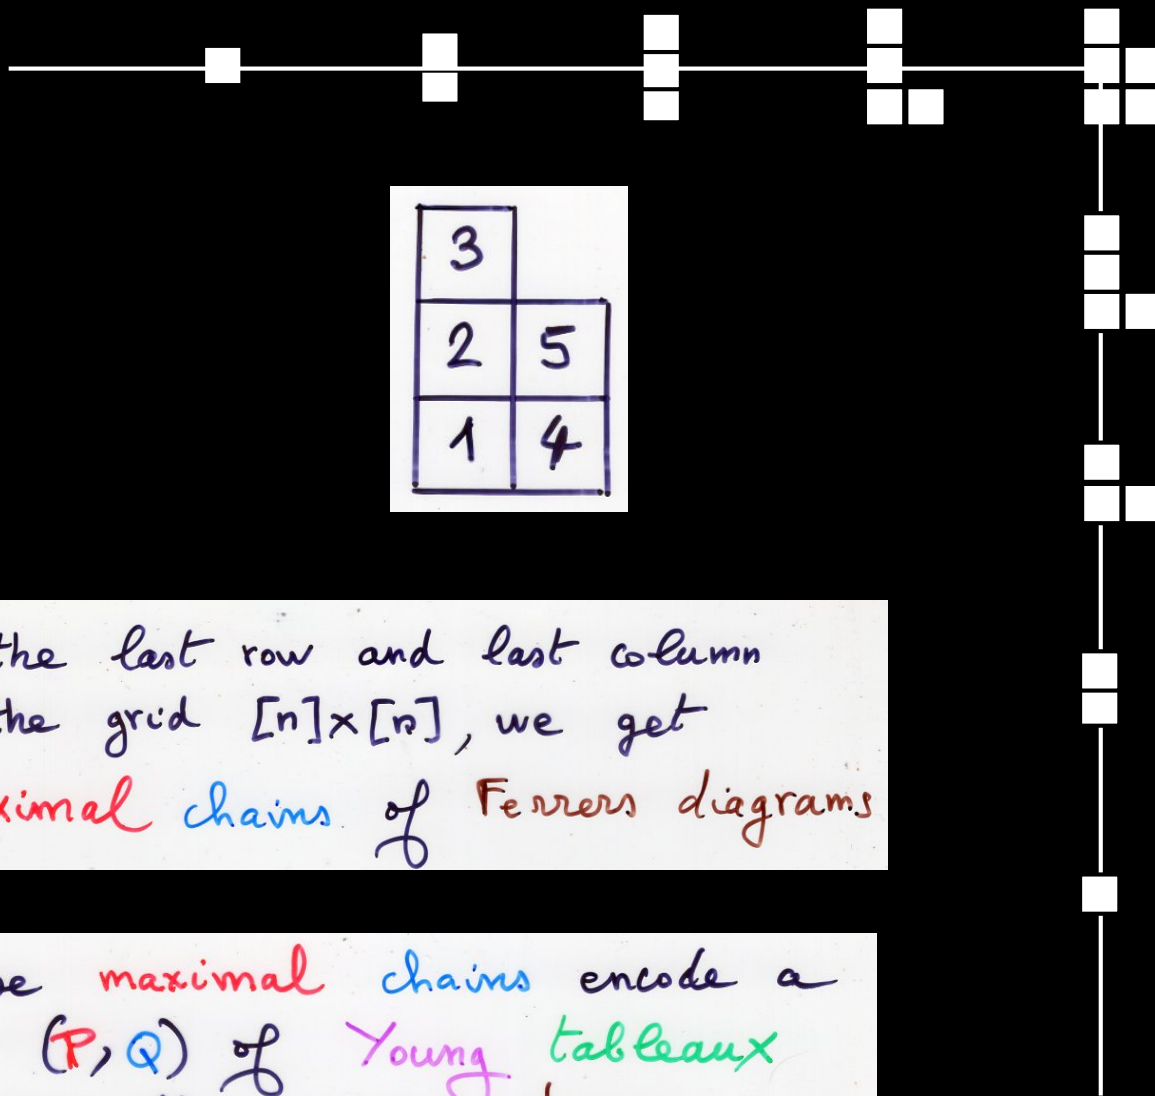 3
2 5
1 4
the last row and last column
the grid [n]×[n], we get
ximal chains of Ferrers diagrams
maximal chains encode a
(P, Q) of Young tableaux